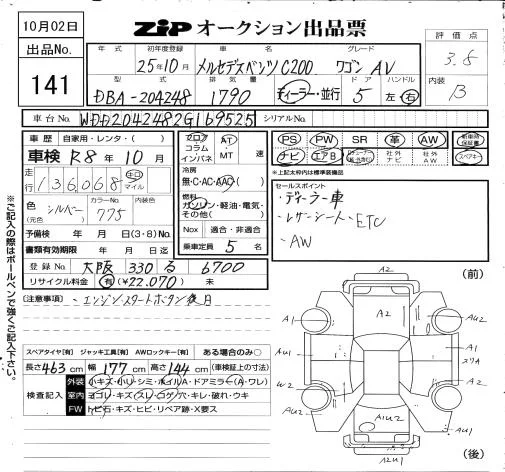 10月02日
ZIP オークション出品票
出品No.
141
評価点
3.5
内装
B
年式 初年度登録 車名 グレード
25年10月 メルセデスベンツ C200 ワゴン AV
型式 排気量 ドア ハンドル
DBA-204248 1790 ディーラー・並行 5 左・右
車台No. WDD2042482G169525 シリアルNo.
車歴 自家用・レンタ・( )
車検 R8年10月
走行 136,068 キロ マイル
色(元色) シルバー カラーNo. 775 内装色
予備検 年 月 日(3・8)No.
書類有効期限 年 月 日迄
登録No. 大阪 330 る 6700
リサイクル料金 有 (¥22,070) 未
フロア コラム インパネ AT・MT 速
冷房
無・C・AC・AAC
燃料
ガソリン・軽油・電気・その他( )
Nox 適合・非適合
乗車定員 5 名
PS PW SR 革 AW 新車時保証書
ナビ エアB 社外ナビ 社外AW スペアキー
※上記太枠内は標準装備品
セールスポイント
・ディーラー車
・レザーシート、ETC
・AW
(注意事項) ・エンジンスタートボタン後月
スペアタイヤ[有] ジャッキ工具[有] AWロックキー[有] ある場合のみ〇
長さ463cm 幅177cm 高さ144cm (車検証上の寸法)
検査記入
外装 小キズ・小リ・シミ・ホイルA・ドアミラー(A・ワレ)
室内 ヨゴレ・キズ・(スレ・コゲ)穴・キレ・破れ・ウキ
FW トビ石・キズ・ヒビ・リペア跡・X要ス
※ご記入の際はボールペンで強くご記入下さい。
(前)
A2
A1
A2
AU2
AU1
A1
スリA
W2
A2
A1U2
AU2
A2U1
(後)